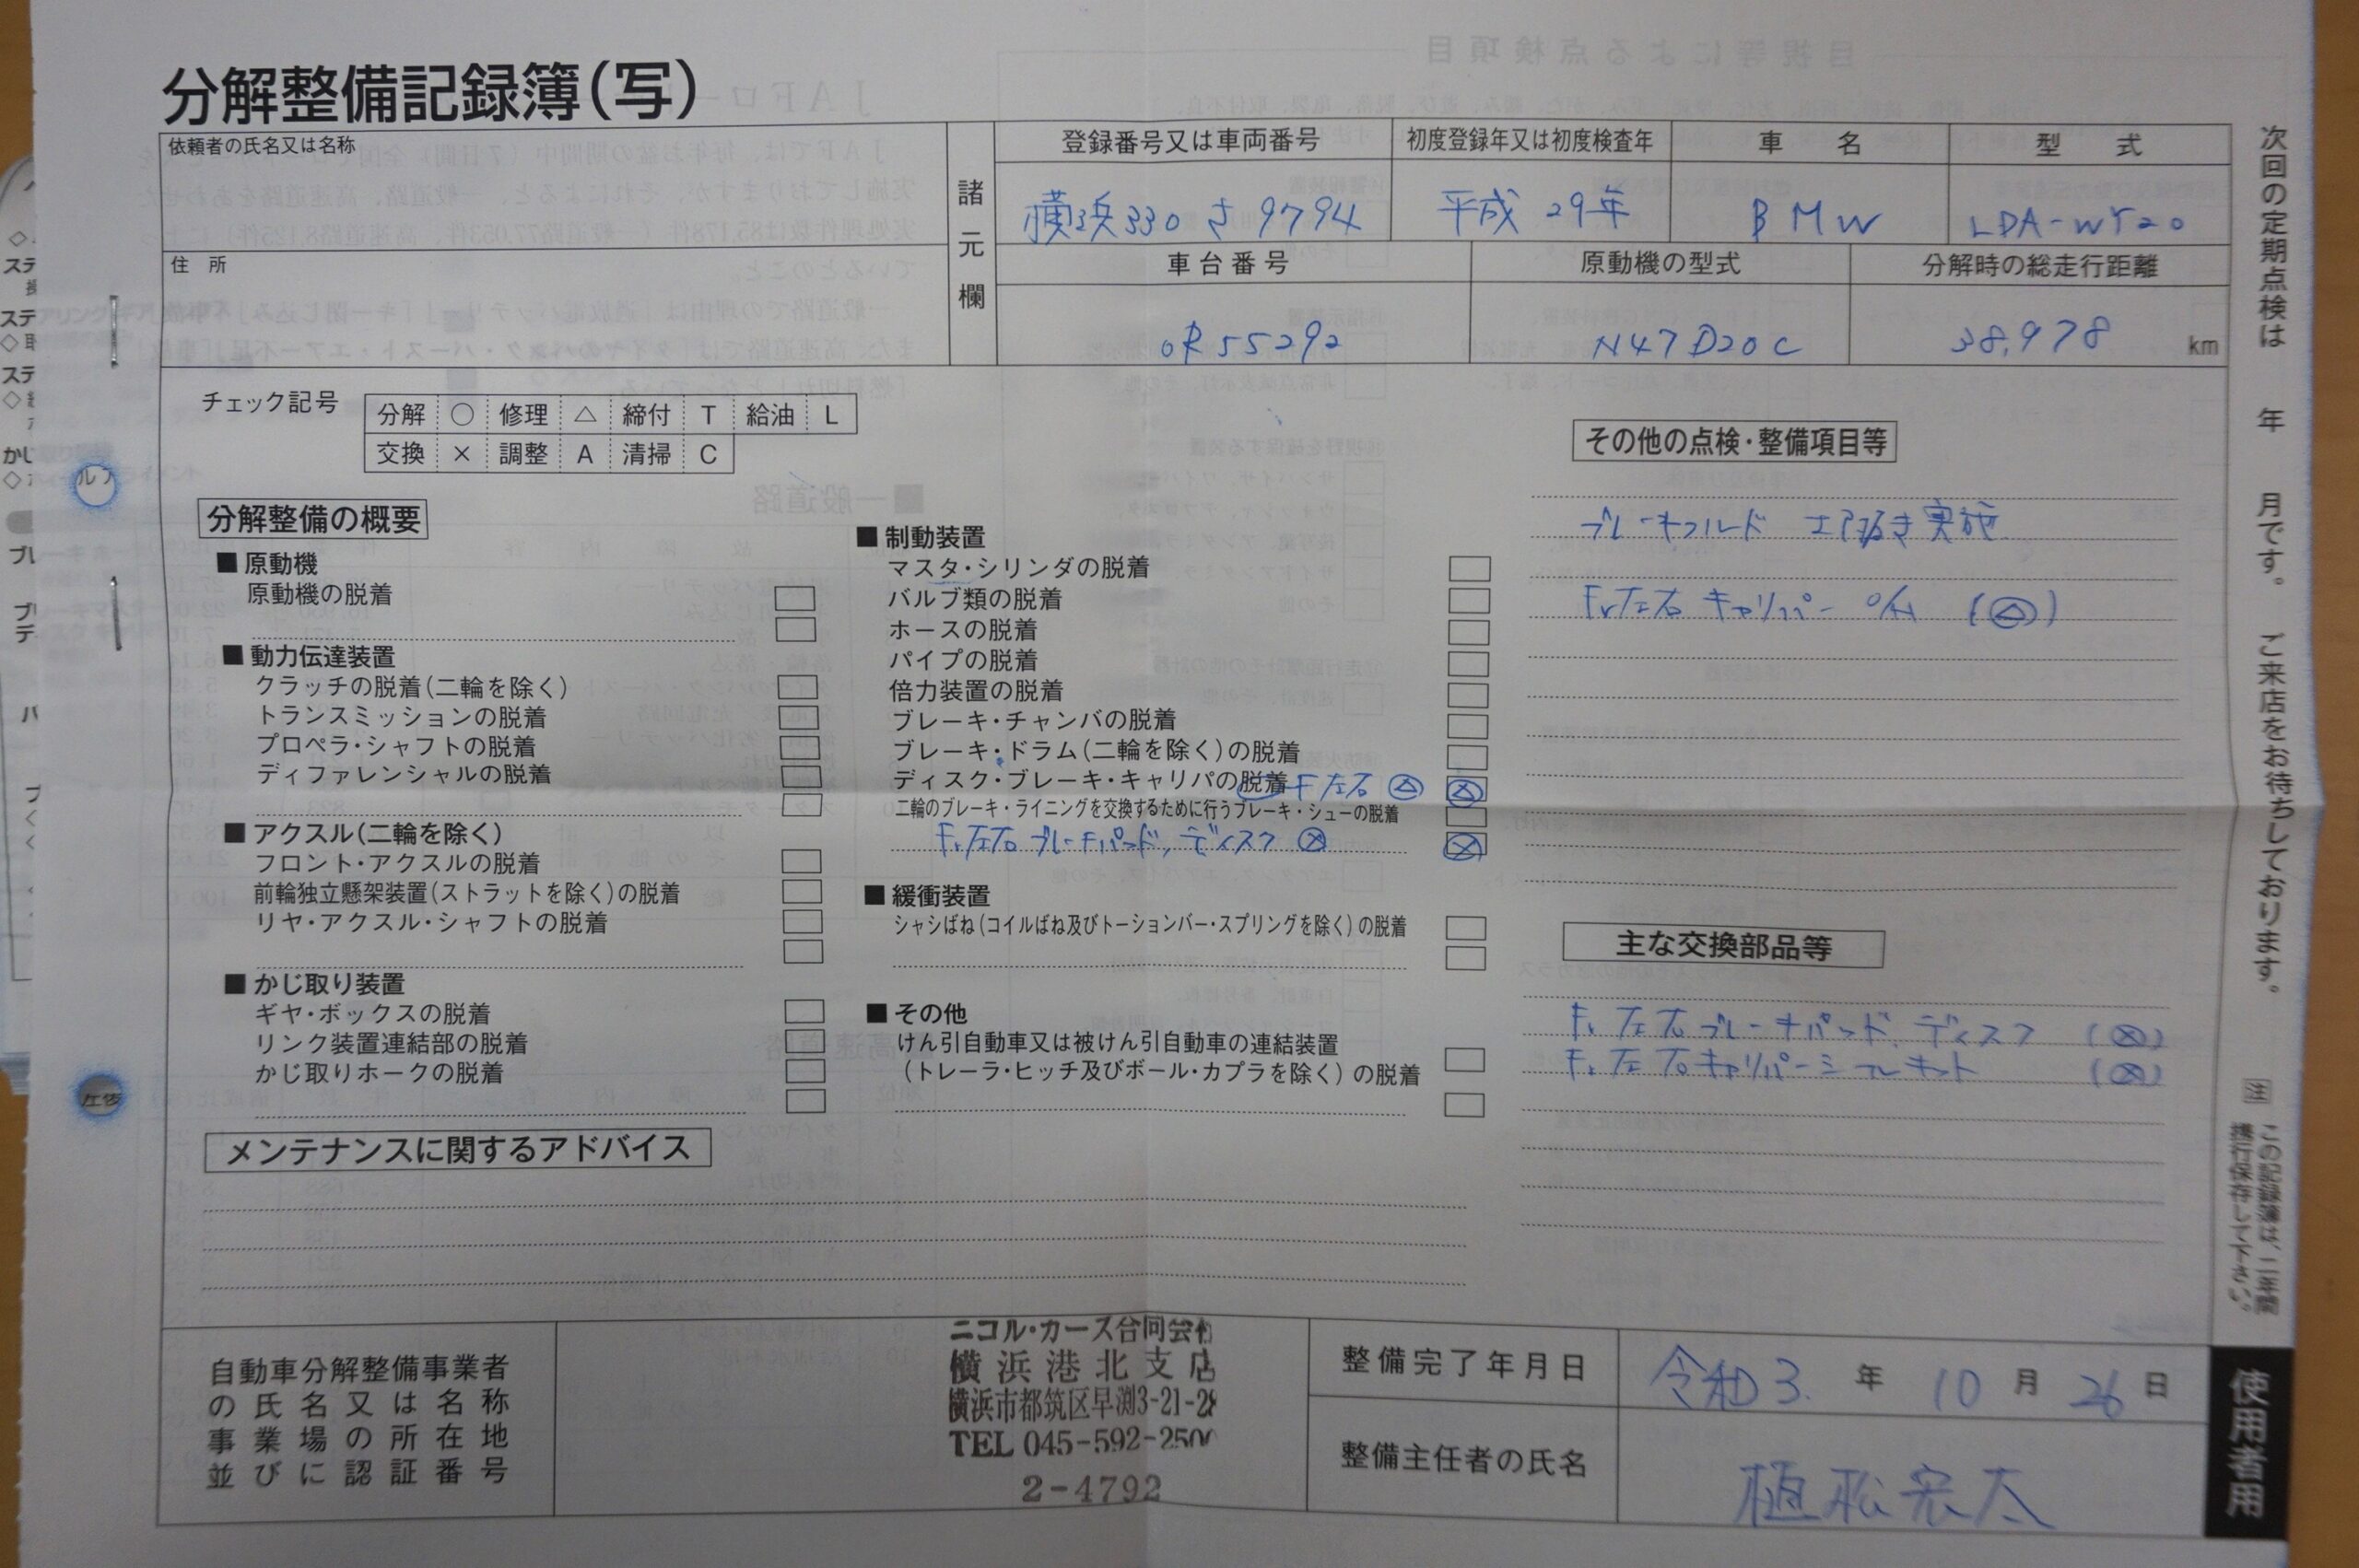 分解整備記録簿(写)
依頼者の氏名又は名称
住 所
諸元欄
登録番号又は車両番号 初度登録年又は初度検査年 車 名 型 式
横浜330 さ 9794 平成 29年 BMW LDA-WY20
車台番号 原動機の型式 分解時の総走行距離
0R55292 N47D20C 38,978 km
チェック記号
分解 ○ 修理 △ 締付 T 給油 L
交換 × 調整 A 清掃 C
分解整備の概要
■ 原動機
原動機の脱着
■ 動力伝達装置
クラッチの脱着(二輪を除く)
トランスミッションの脱着
プロペラ・シャフトの脱着
ディファレンシャルの脱着
■ アクスル(二輪を除く)
フロント・アクスルの脱着
前輪独立懸架装置(ストラットを除く)の脱着
リヤ・アクスル・シャフトの脱着
■ かじ取り装置
ギヤ・ボックスの脱着
リンク装置連結部の脱着
かじ取りホークの脱着
■ 制動装置
マスタ・シリンダの脱着
バルブ類の脱着
ホースの脱着
パイプの脱着
倍力装置の脱着
ブレーキ・チャンバの脱着
ブレーキ・ドラム(二輪を除く)の脱着
ディスク・ブレーキ・キャリパの脱着 F左右 △ △
二輪のブレーキ・ライニングを交換するために行うブレーキ・シューの脱着
Fr左右 ブレーキパッド、ディスク ⊗ ⊗
■ 緩衝装置
シャシばね(コイルばね及びトーションバー・スプリングを除く)の脱着
■ その他
けん引自動車又は被けん引自動車の連結装置
(トレーラ・ヒッチ及びボール・カプラを除く)の脱着
その他の点検・整備項目等
ブレーキフルード エア抜き実施
Fr左右 キャリパー O/H (△)
主な交換部品等
Fr 左右ブレーキパッド、ディスク (⊗)
Fr 左右キャリパーシールキット (⊗)
メンテナンスに関するアドバイス
自動車分解整備事業者
の氏名又は名称
事業場の所在地
並びに認証番号
ニコル・カーズ合同会社
横浜港北支店
横浜市都筑区早渕3-21-28
TEL 045-592-2500
2-4792
整備完了年月日 令和3. 年 10 月 26 日
整備主任者の氏名 植松宏太
次回の定期点検は 年 月です。 ご来店をお待ちしております。
注 この記録簿は、二年間
携行保存して下さい。
使用者用